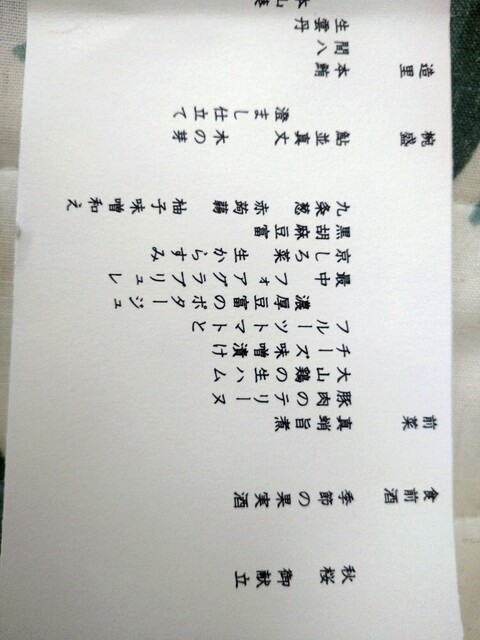 秋桜 御献立
食前酒 季節の果実酒
前菜 真蛸旨煮
豚肉のテリーヌ
大山鶏の生ハム
チーズ味噌漬け
フルーツトマトと
濃厚豆富のポタージュ
最中 フォアグラブリュレ
京しろ菜 生からすみ
黒胡麻豆富
九条葱 赤蒟蒻 柚子味噌和え
椀盛 鮎並真丈 木の芽
澄まし仕立て
造里 本鮪
間八
生雲丹